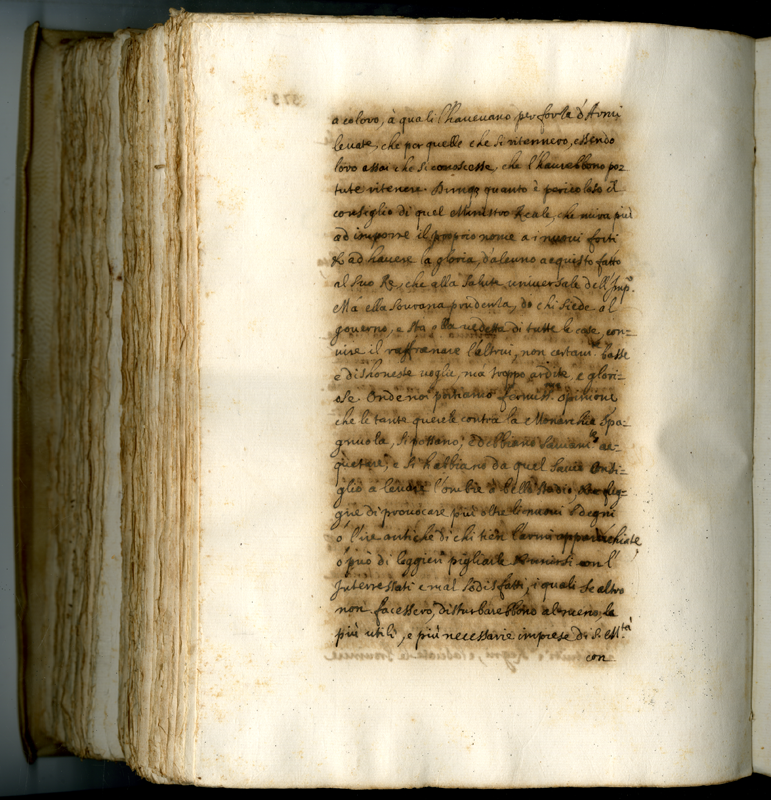 a coloro, à quali l'haveuano per forza d'Armi
leuate, che per quelle che si ritennero, essendo
loro assai che si conoscesse, che l'haurebbono po-
tute ritenere. Dunqz quanto è pericoloso il
consiglio di quel Ministro Reale, che mira più
ad imporre il proprio nome a i nuoui forti
& ad hauere la gloria, d'alcuno acquisto fatto
al suo Rè, che alla salute uniuersale dell'Imp.º
Mà ella sourana prudenza, de chi siede al
gouerno, e sta alla uedetta di tutte le cose, con-
uire il raffrenare l'altrui, non certam.te basse
e dishoneste uoglie, ma troppo ardite, e glori-
ose. Onde noi portiamo fermiss.ma opinione
che le tante querele contra la Monarchia Spa-
gnuola, si possano, e debbiano sauiam.te ac-
quetare, e si habbiano da quel Sauio Consi-
glio a leuare l'ombre
gire di prouocare più oltre i nuoui sdegni
ò l'ire antiche di chi tien l'armi apparecchiate,
ò può di leggieri pigliarle & unirsi con l'
Interressati e mal sodisfatti, i quali se altro
non facessero, disturbarebbono almeno, le
più utili, e più necessarie imprese di S. M.tà
con